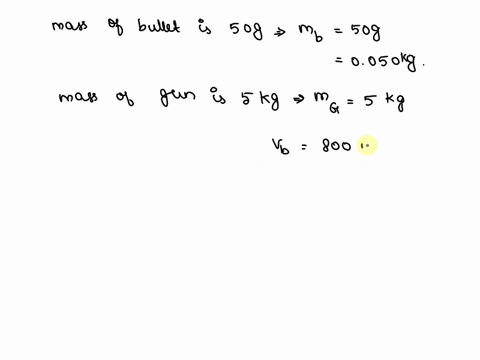 mass of bullet is 50g ⇒ m_b = 50g
= 0.050kg.
mass of gun is 5 kg ⇒ m_G = 5 kg
V_b = 800